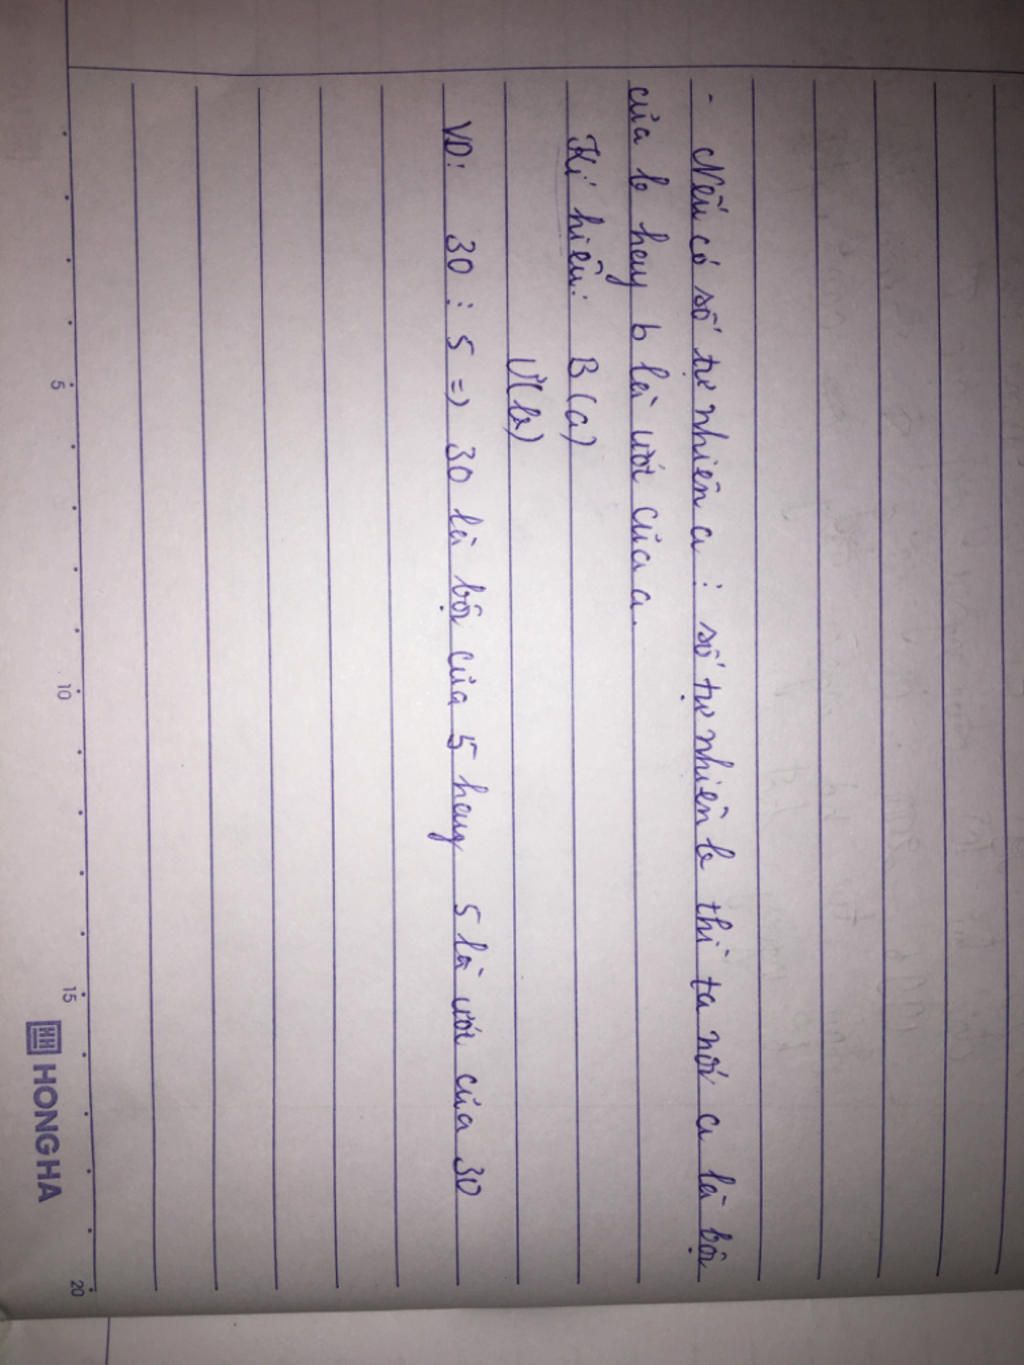 - Nếu có số tự nhiên a ⋮ số tự nhiên b thì ta nói a là bội
của b hay b là ước của a.
Kí hiệu: B(a)
Ư(b)
VD: 30 ⋮ 5 => 30 là bội của 5 hay 5 là ước của 30
5 10 15 20
HH HONG HA